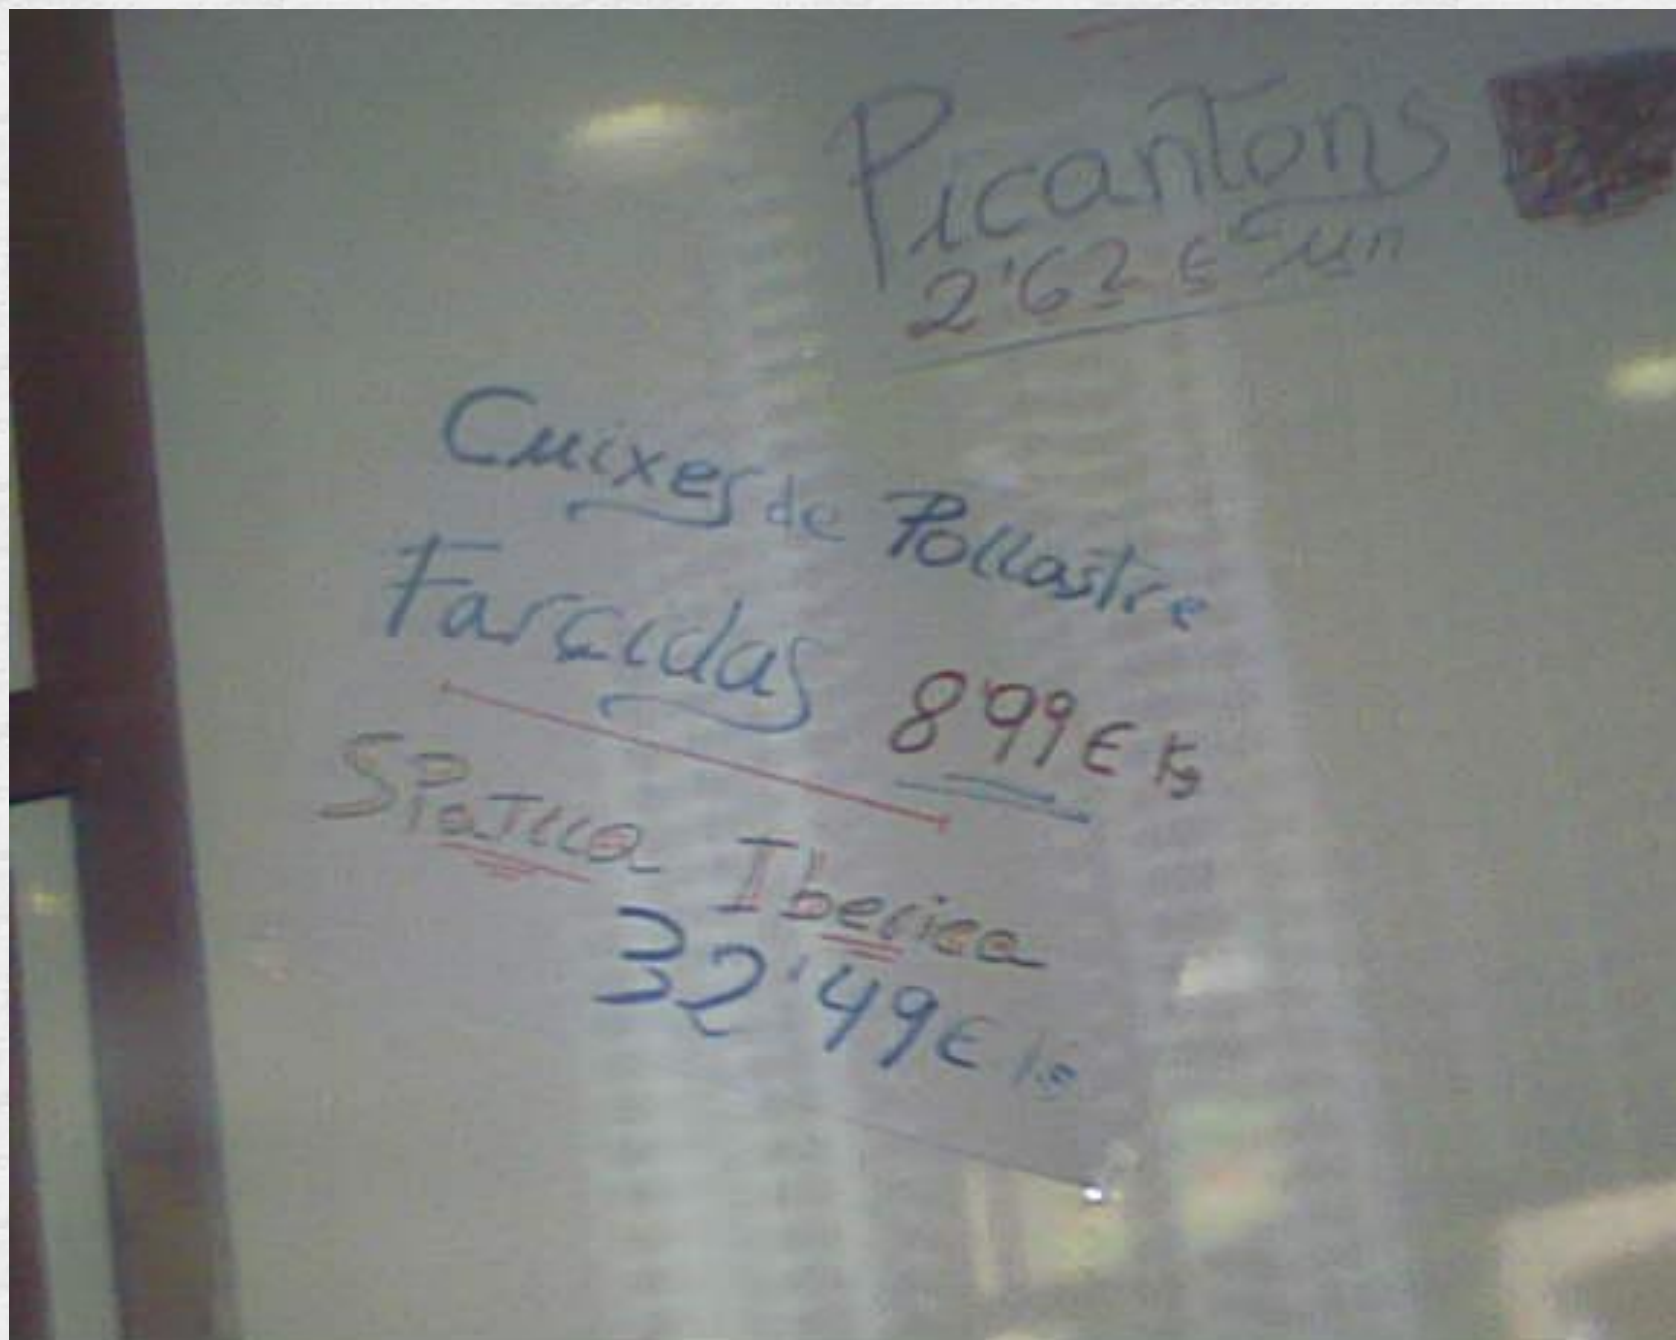 Picantons
2'62 € un
Cuixes de Pollastre
Farcidas
8'99 € Kg
SPaTlla Iberica
32'49 € Kg